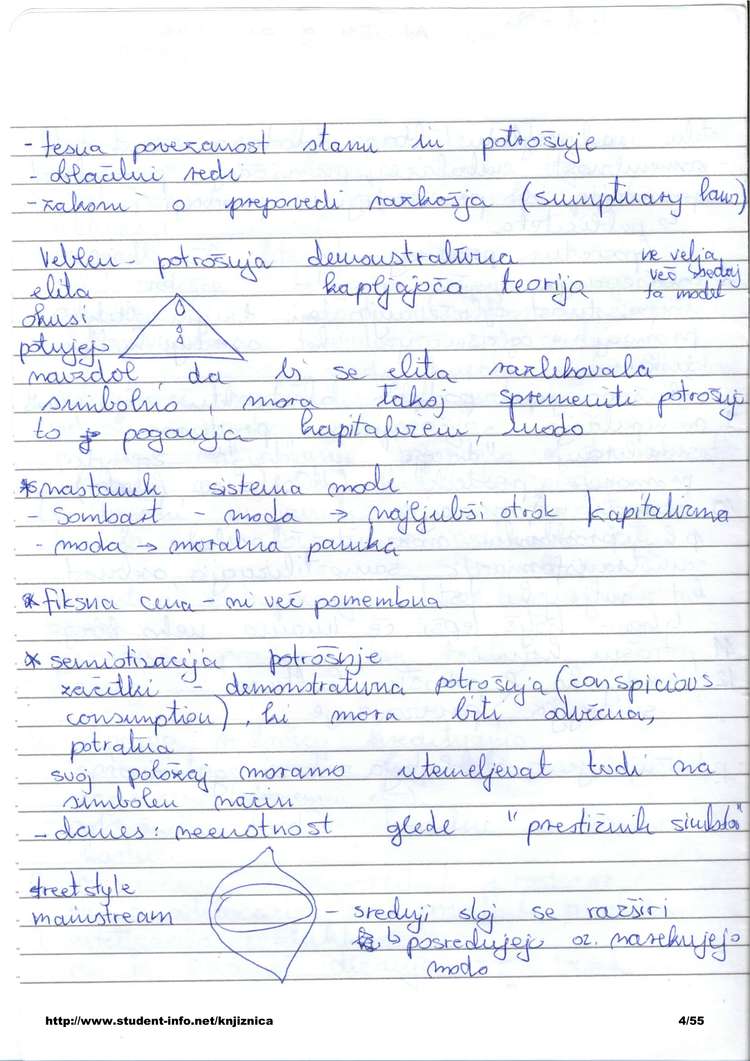 - tesna povezanost stanu in potrošnje
- oblačilni redi
- zakoni o prepovedi razkošja (sumptuary laws)
Veblen - potrošnja demonstrativna
ne velja
več sedaj
ta model
elita kapljajoča teorija
okusi
potujejo
navzdol, da bi se elita razlikovala
simbolno, mora takoj spremeniti potrošnjo
to poganja kapitalizem, modo
* nastanek sistema mode
- Sombart - moda → najljubši otrok kapitalizma
- moda → moralna panika
* fiksna cena - ni več pomembna
* semiotizacija potrošnje
začetki - demonstrativna potrošnja (conspicious
consumption), ki mora biti odvečna,
potratna
svoj položaj moramo utemeljevat tudi na
simbolen način
- danes: neenotnost glede "prestižnih simbolov"
street style
mainstream - srednji sloj se razširi
↳ posredujejo oz. narekujejo
modo
http://www.student-info.net/knjiznica 4/55